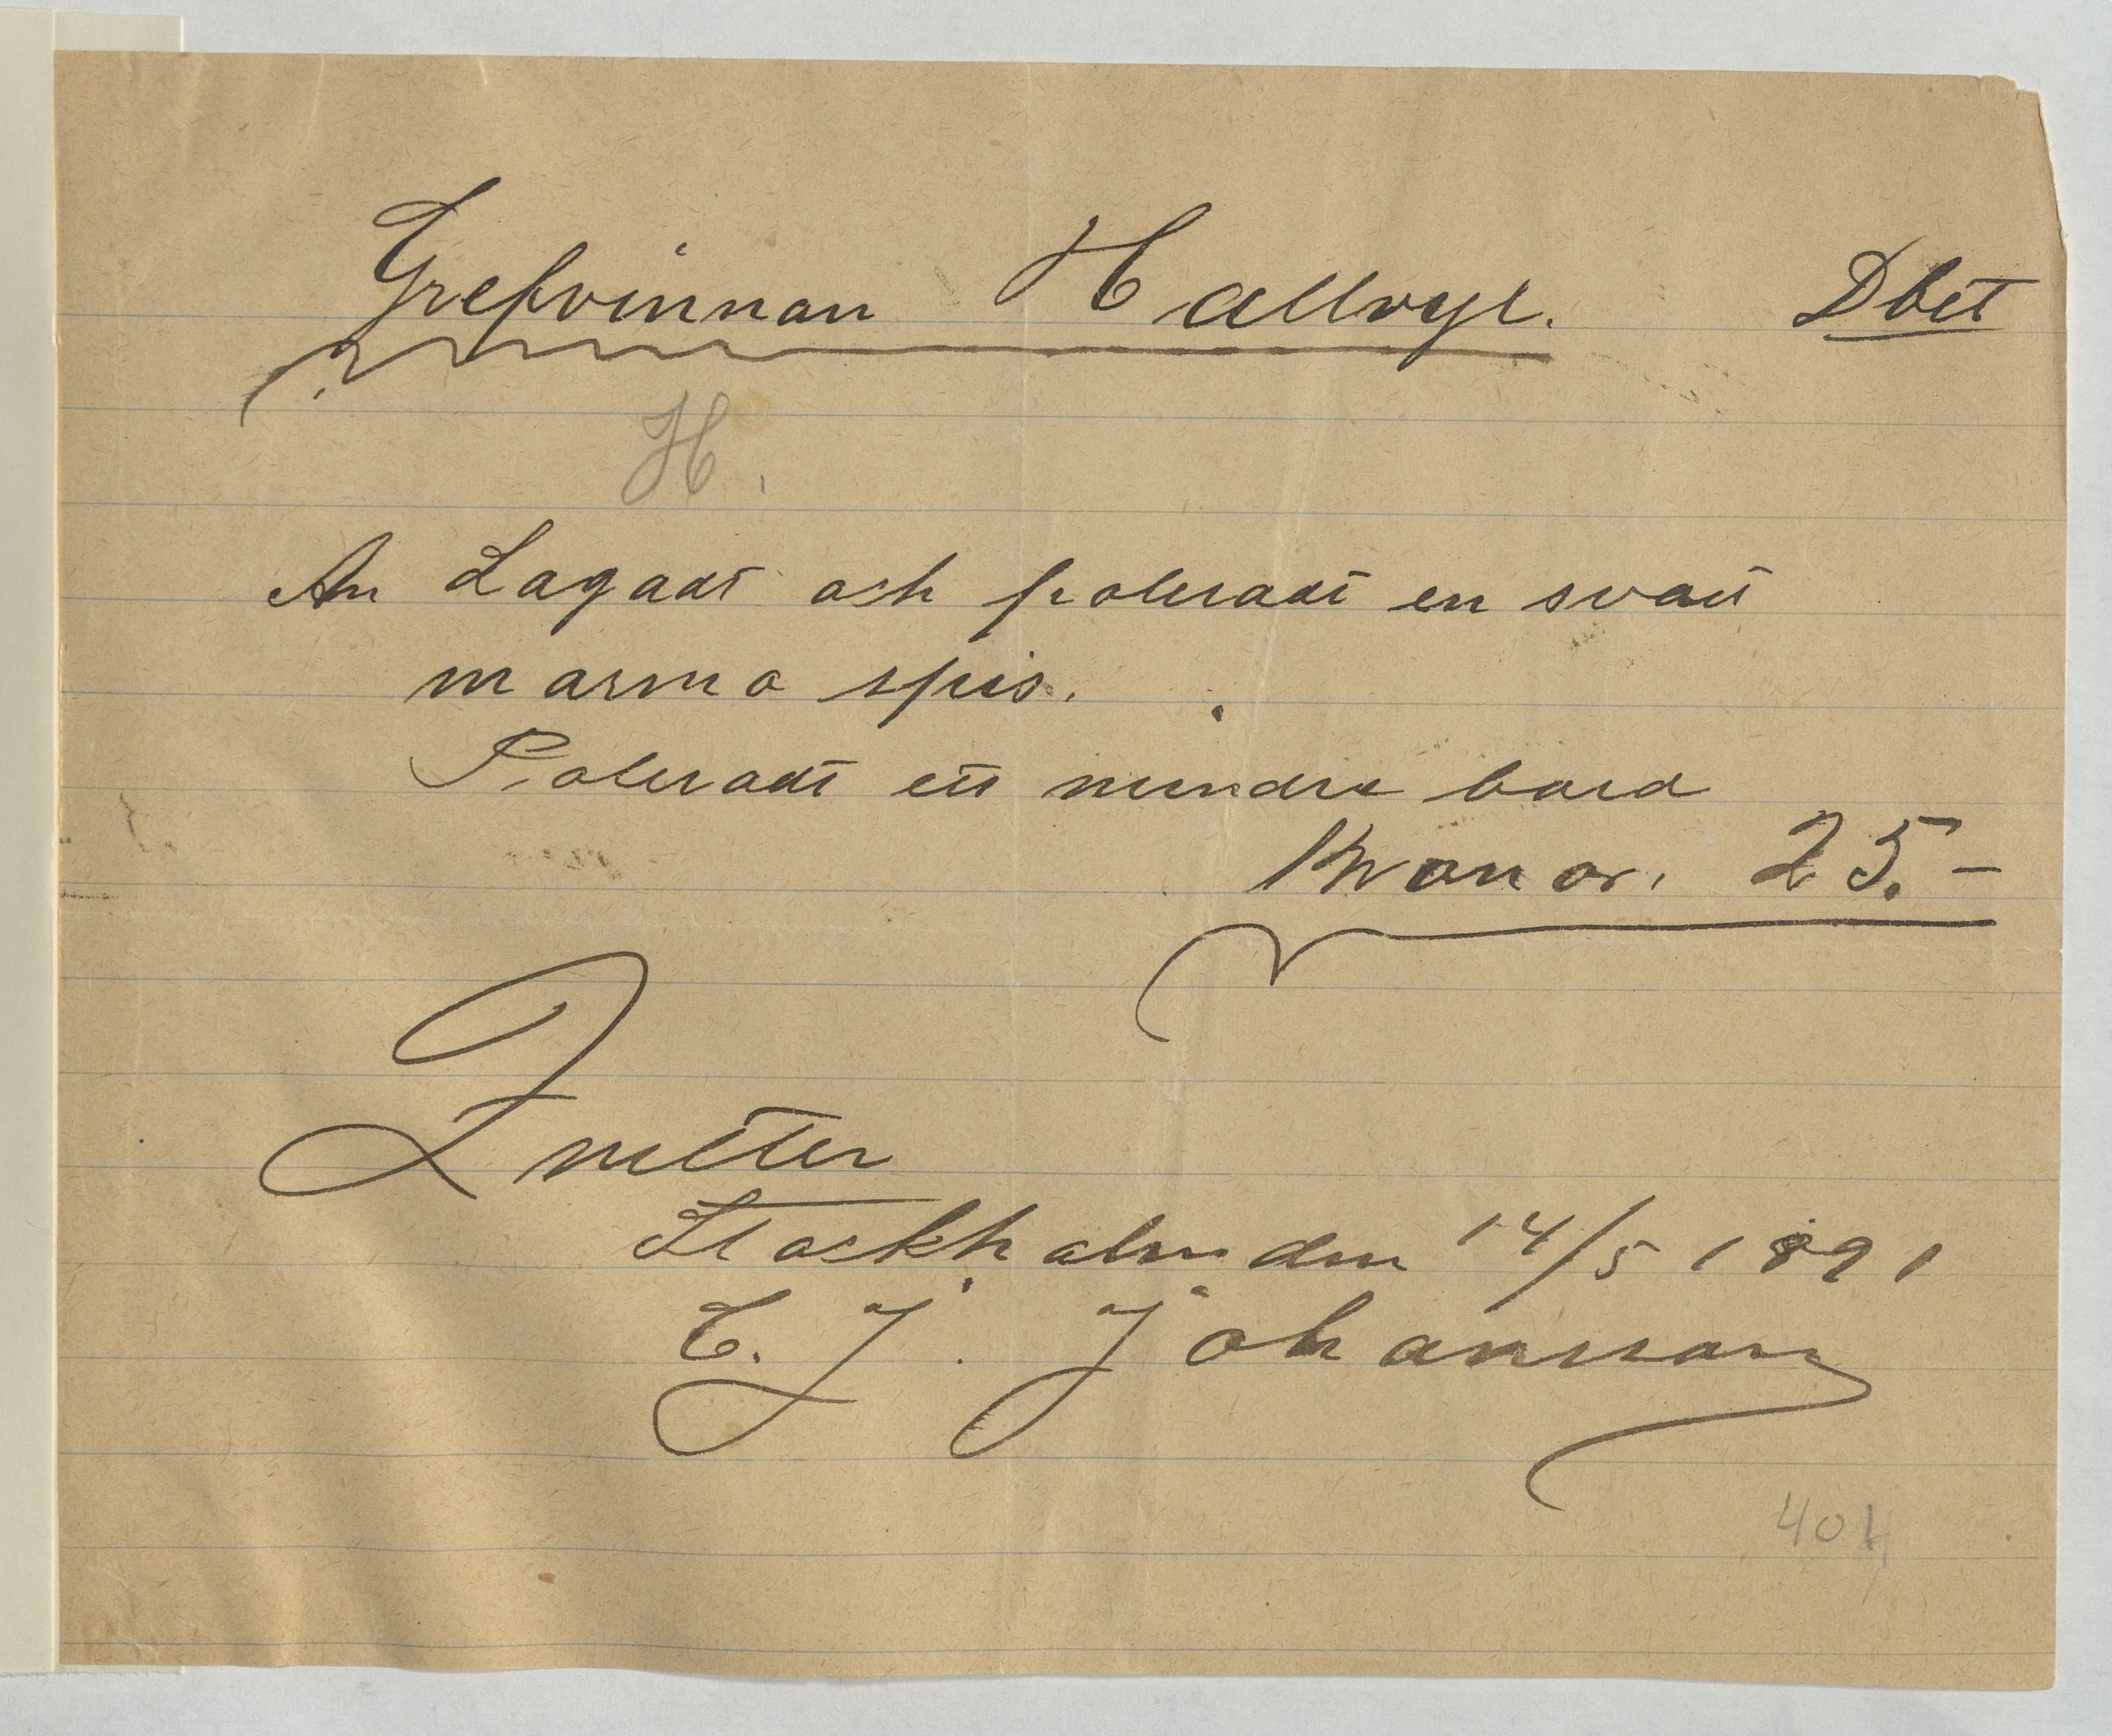 Grefvinnan Hallvyl. Dbet
H.
An Lagadt och poleradt en svatt
marmo spis.
Poleradt ett mindre bord
Kronor. 25.–
Qvitter
Stockholm den 14/5 1891
C. J. Johansson
404